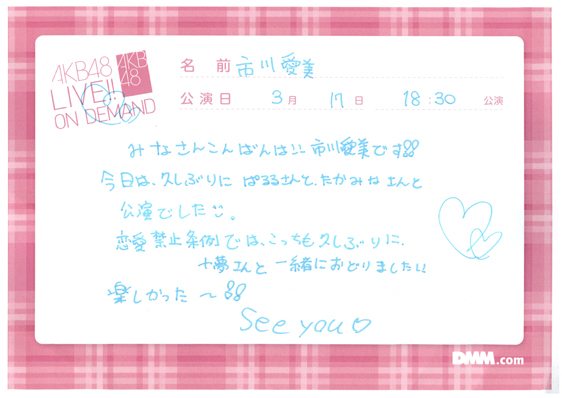 AKB48
LIVE!!
ON DEMAND
AKB
48
名 前 市川愛美
公演日 3月 17日 18:30 公演
みなさんこんばんは!! 市川愛美です!!
今日は、久しぶりに ぱるるさんと、たかみなさんと
公演でした
恋愛禁止条例では、こっちも久しぶりに、
十夢さんと 一緒におどりました!!
楽しかった〜!!
See you♡
DMM.com